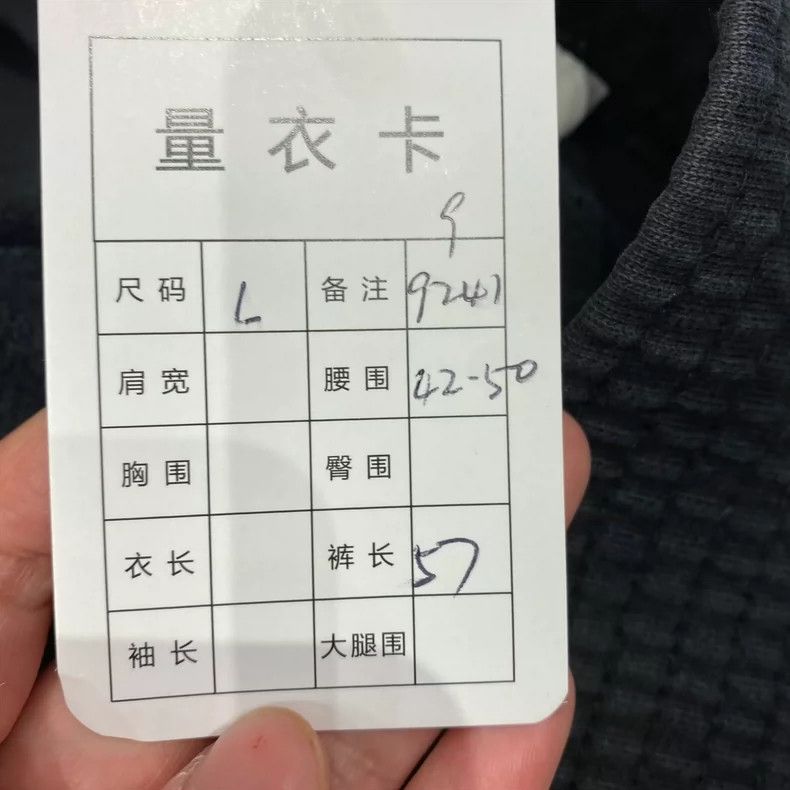 量衣卡
9
尺码 L 备注 9241
肩宽 腰围 42-50
胸围 臀围
衣长 裤长 57
袖长 大腿围